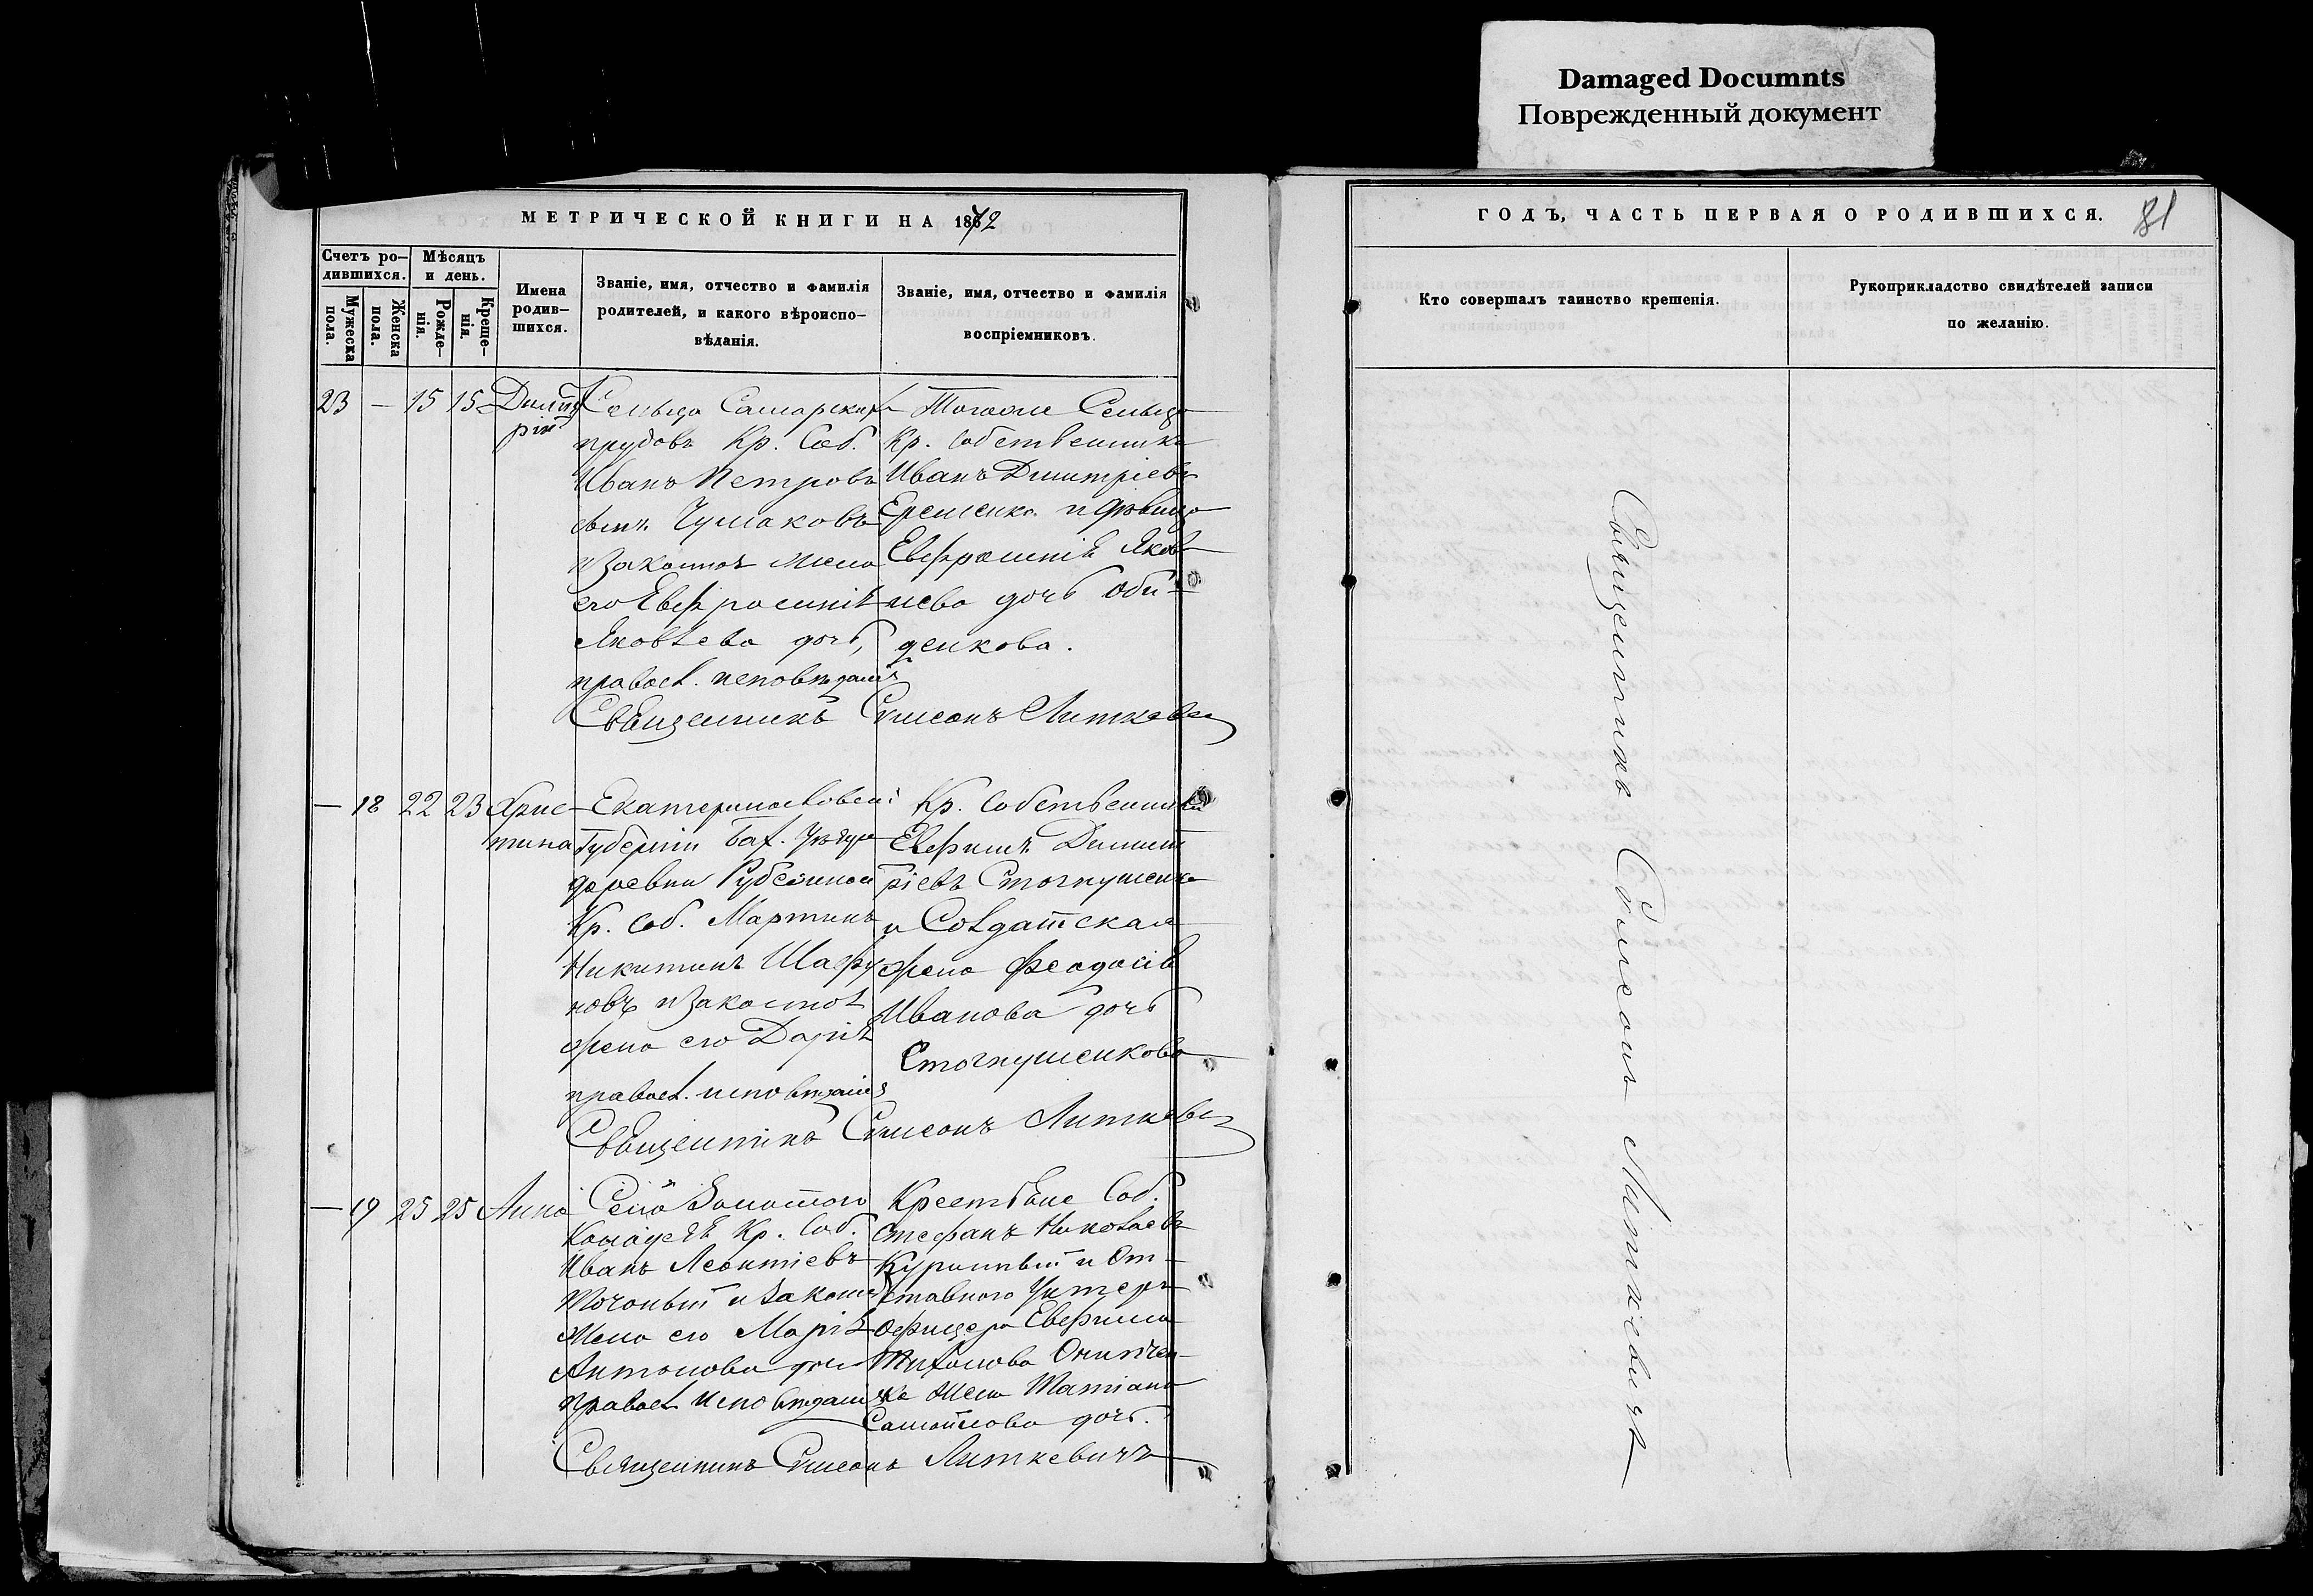 Damaged Documnts
Поврежденный документ
МЕТРИЧЕСКОЙ КНИГИ НА 1872
Счетъ ро-
дившихся.
Мѣсяцъ
и день.
Мужеска
пола.
Женска
пола.
Рожде-
нія.
Креще-
нія.
Имена
родив-
шихся.
Званіе, имя, отчество и фамилія
родителей, и какого вѣроиспо-
вѣданія.
Званіе, имя, отчество и фамилія
воспріемниковъ.
23 — 15 15 Димит
рій
Сельца Самарскихъ
прудовъ Кр. Соб.
Иванъ Петровъ
сынъ Чумаковъ
и Законная жена
его Евфросинія
Яковлева дочь,
правосл. исповѣданія
Тогоже Сельца
Кр. Собственника
Иванъ Димитріевъ
Еременко и дѣвица
Евфросинія Яков
лева дочь Оби-
денкова.
Священникъ Симеонъ Литкевич
— 18 22 23 Хрис-
тина
Екатеринославской
Губерніи Бах. Уѣзда
деревни Рубежной
Кр. Соб. Мартинъ
Никитинъ
новъ и Законная
жена его Дарія
правосл. исповѣданія
Кр. Собственникъ
Евфимъ Димит
ріевъ Стогнушенко
и Солдатская
жена Феодосія
Иванова дочь
Стогнушенкова
Священникъ Симеонъ Литкевич
— 19 25 25 Анна
Села Золотого
Колодезя Кр. Соб.
Иванъ Леонтіевъ
и Законная
Жена его Марія
Антонова дочь
правосл. Исповѣданія
Крестьяне Соб.
Стефанъ Николаевъ
и От-
ставного Унтеръ
офицера Евфима
Тихонова
жена Татіана
Самойлова дочь.
Священникъ Симеонъ Литкевичъ
ГОДЪ, ЧАСТЬ ПЕРВАЯ О РОДИВШИХСЯ.
81
Кто совершалъ таинство крещенія.
Рукоприкладство свидѣтелей записи
по желанію.
Священникъ Симеонъ Литкевичъ